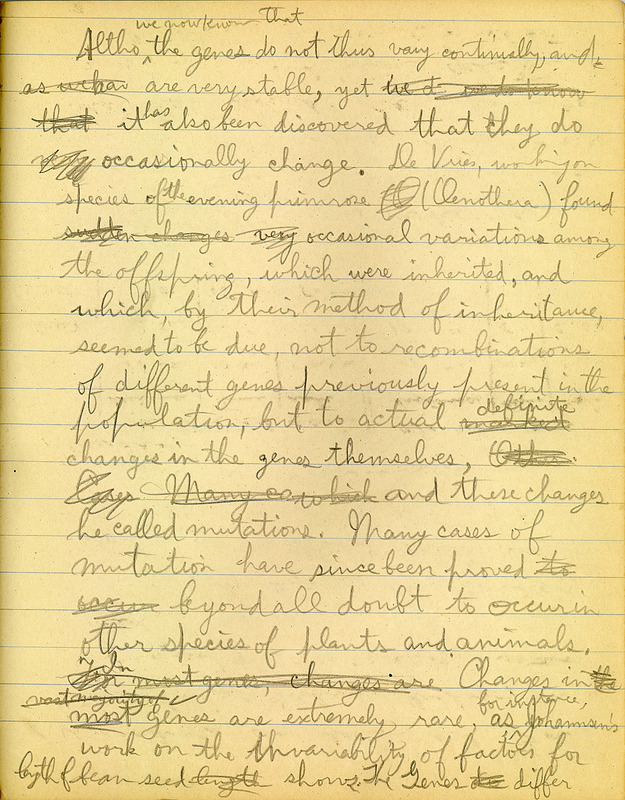 we now know that
Altho ^ the genes do not thus vary continually, and
as are very stable, yet we do know
that it has also been discovered that they do
occasionally change. De Vries, working on
species of the evening primrose (Oenothera) found
sudden changes very occasional variations among
the offspring, which were inherited, and
which, by their method of inheritance,
seemed to be due, not to recombinations
of different genes previously present in the
definite
population, but to actual marked
changes in the genes themselves, (Other
Cases Many ca which and these changes
he called mutations. Many cases of
mutation have since been proved to
occur beyond all doubt to occur in
other species of plants and animals.
In
In most genes, changes are Changes in the
vast majority of for instance,
most genes are extremely rare, as Johannsen's
work on the invariability of factors for
length of bean seed length shows. The Genes differ